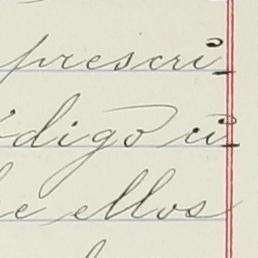 prescri-
ódigo ci-
e ellos